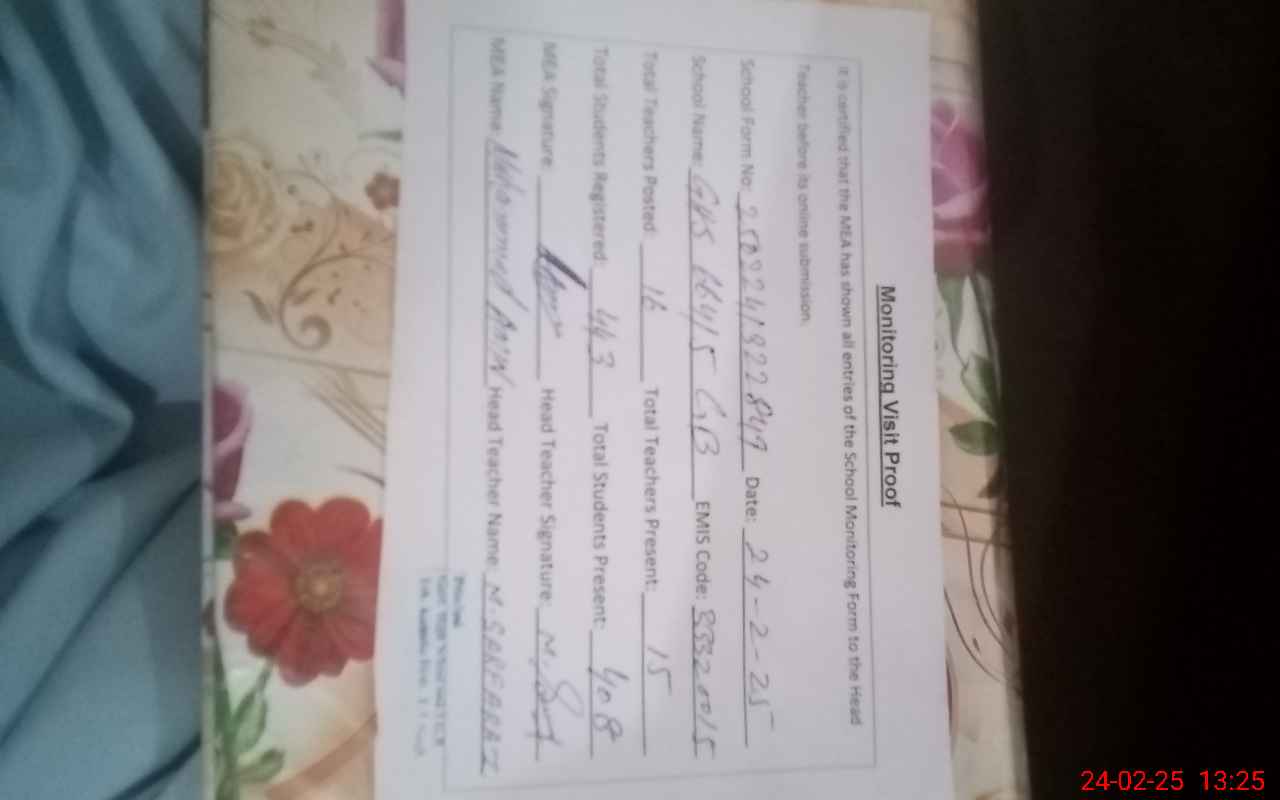 Monitoring Visit Proof
It is certified that the MEA has shown all entries of the School Monitoring Form to the Head
Teacher before its online submission.
School Form No: 2502241922849 Date: 24-2-25
School Name: GHS 664/5 GB EMIS Code: 33320015
Total Teachers Posted: 16 Total Teachers Present: 15
Total Students Registered: 443 Total Students Present: 408
MEA Signature: Head Teacher Signature:
MEA Name: Muhammad Head Teacher Name: M. SARFARAZ
Principal
24-02-25 13:25